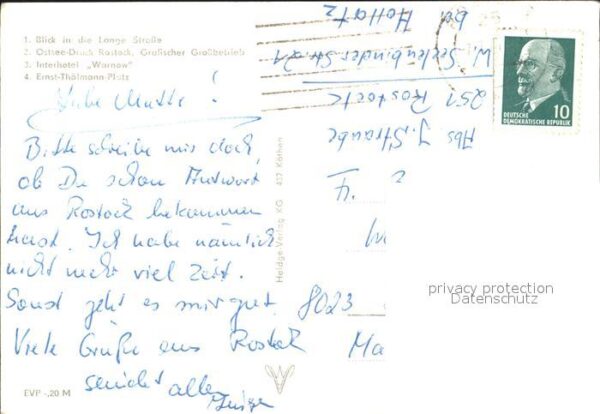 1. Blick in die Lange Straße
2. Ostsee-Druck Rostock, Grafischer Großbetrieb
3. Interhotel „Warnow"
4. Ernst-Thälmann-Platz
Liebe Mutti!
Bitte schreibe mir doch,
ob Du schon Antwort
aus Rostock bekommen
hast. Ich habe nämlich
nicht mehr viel Zeit.
Sonst geht es mir gut.
Viele Grüße aus Rostock
sendet allen
EVP -,20 M
Heldge-Verlag KG 437 Köthen
Abs J. Straube
251 Rostock
W. Seelenbinder Str. 21
bei
DEUTSCHE
DEMOKRATISCHE REPUBLIK
10
Fr.
8023
Ma
privacy protection
Datenschutz